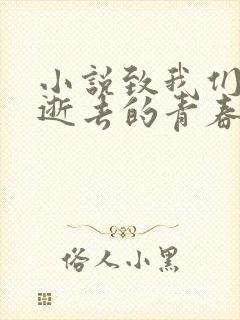 小说致我们
逝去的青春
俗人小黑